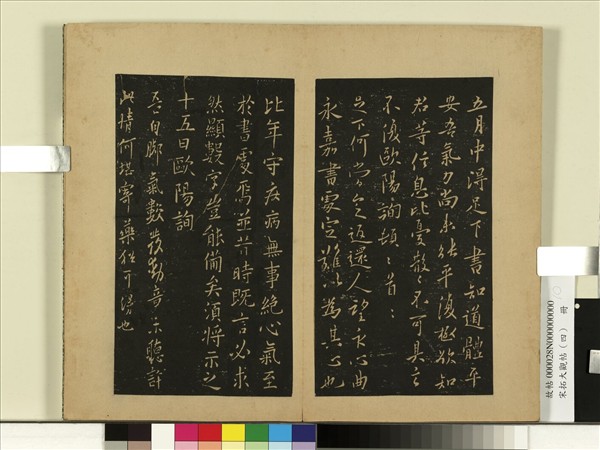 五月中得足下書知道體平
安吾氣力尚未能平復極欲知
君等行息比憂散散不可具言
不復歐陽詢頓頓首首
足下何當今返還人望永心曲
永嘉書處定難以為其心也
比年守疾病無事絶心氣至
於書處焉並昔時既言必求
然顯數字豈能備矣須將示之
十五日歐陽詢
吾自腳氣數發動音不聽許
此情何堪寄藥猶可得也
故帖000028N000000000
宋拓大觀帖(四) 冊